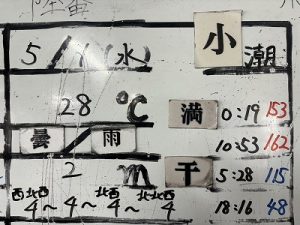 5/1(水) 小潮
28℃ 満 0:19 153
曇/雨 10:53 162
2m 干 5:28 115
西北西 北西 北西
4~4~4~4 18:16 48